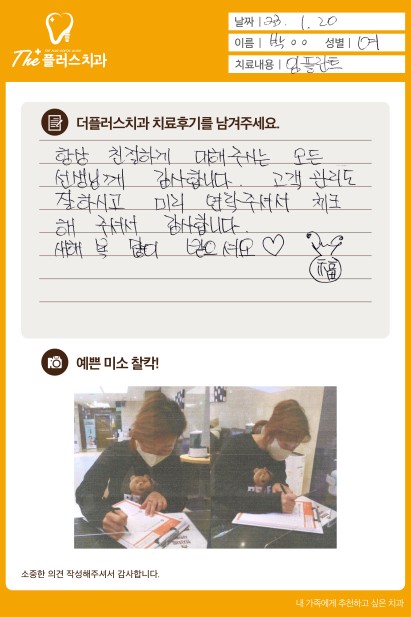 The+ 플러스치과
날짜 | 23. 1. 20
이름 | 박ㅇㅇ 성별 | 여
치료내용 | 임플란트
더플러스치과 치료후기를 남겨주세요.
항상 친절하게 대해주시는 모든
선생님께 감사합니다. 고객 관리도
잘하시고 미리 연락주셔서 체크
해 주셔서 감사합니다.
새해 복 많이 받으셔요♡
福
예쁜 미소 찰칵!
소중한 의견 작성해주셔서 감사합니다.
내 가족에게 추천하고 싶은 치과